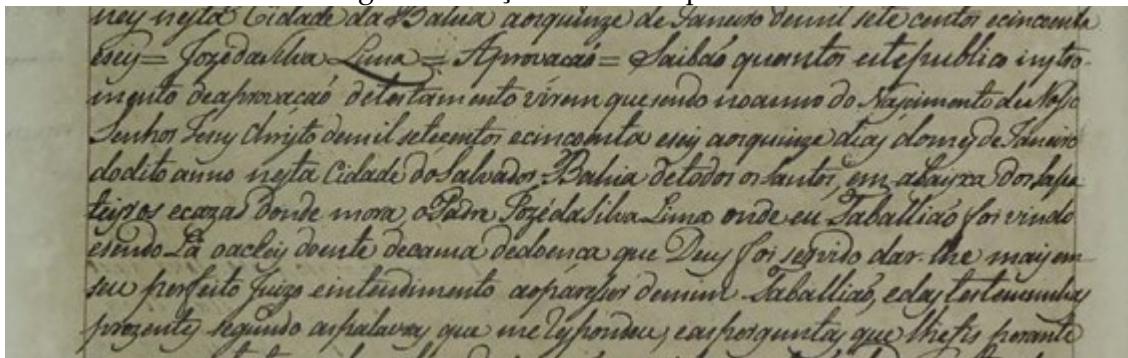 ney nesta Cidade da Bahia aos quinze de Janeiro demil sete centos ecincoenta
eseis= Jozé da Silva Lima = Aprovacaõ = Saibaõ quantos este publico instro-
mento de aprovacaõ de testamento virem que sendo no anno do Nascimento de Nosso
Senhor Jesus Christo demil setecentos ecincoenta eseis aos quinze dias do mes de Janeiro
do dito anno nesta Cidade do Salvador Bahia de todos os Santos, em abayxa dos Sapa
teiros ecazas donde mora o Padre Jozé da Silva Lima onde eu Taballiaõ foi vindo
esendo Lá oachey doente decama dedoença que Deus foi servido dar-lhe mas em
seu perfeito Juizo eintendimento aopareser demim Taballiaõ, edas testemunhas
prezentes segundo aspalavras que me respondeu, easperguntas que lhe fis perante